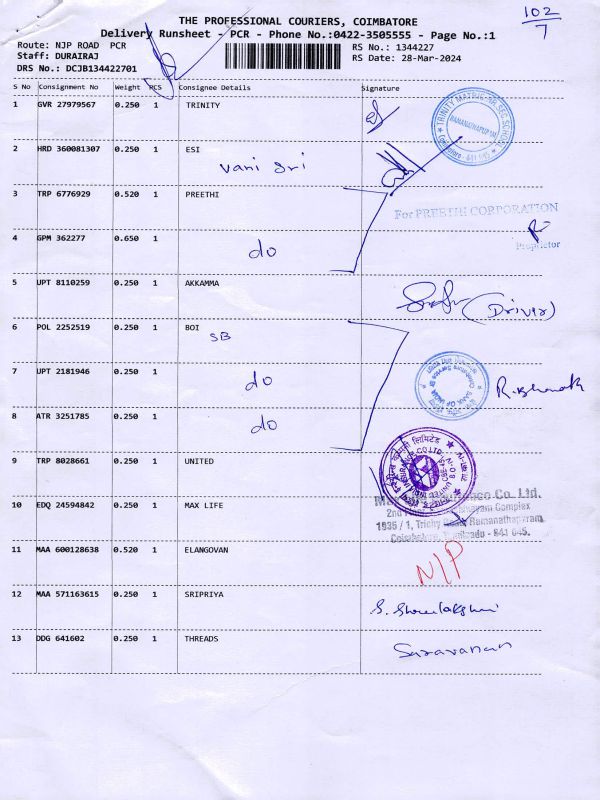 102
7
THE PROFESSIONAL COURIERS, COIMBATORE
Delivery Runsheet - PCR - Phone No.:0422-3505555 - Page No.:1
Route: NJP ROAD PCR
RS No.: 1344227
Staff: DURAIRAJ
RS Date: 28-Mar-2024
DRS No.: DCJB134422701
S No Consignment No Weight PCS Consignee Details Signature
1 GVR 27979567 0.250 1 TRINITY
TRINITY MATRIC.HR.SEC SCHOOL
RAMANATHAPURAM
2 HRD 360081307 0.250 1 ESI
Vani Sri
3 TRP 6776929 0.520 1 PREETHI
For PREETHI CORPORATION
Proprietor
4 GPM 362277 0.650 1
do
5 UPT 8110259 0.250 1 AKKAMMA
(Driver)
6 POL 2252519 0.250 1 BOI
SB
7 UPT 2181946 0.250 1
do
8 ATR 3251785 0.250 1
do
9 TRP 8028661 0.250 1 UNITED
10 EDQ 24594842 0.250 1 MAX LIFE
Co. Ltd.
2nd Complex
1935 / 1, Trichy Road Ramanathapuram
Coimbatore, Tamilnadu - 641 045.
11 MAA 600128638 0.520 1 ELANGOVAN
N/P
12 MAA 571163615 0.250 1 SRIPRIYA
13 DDG 641602 0.250 1 THREADS
Saravanan